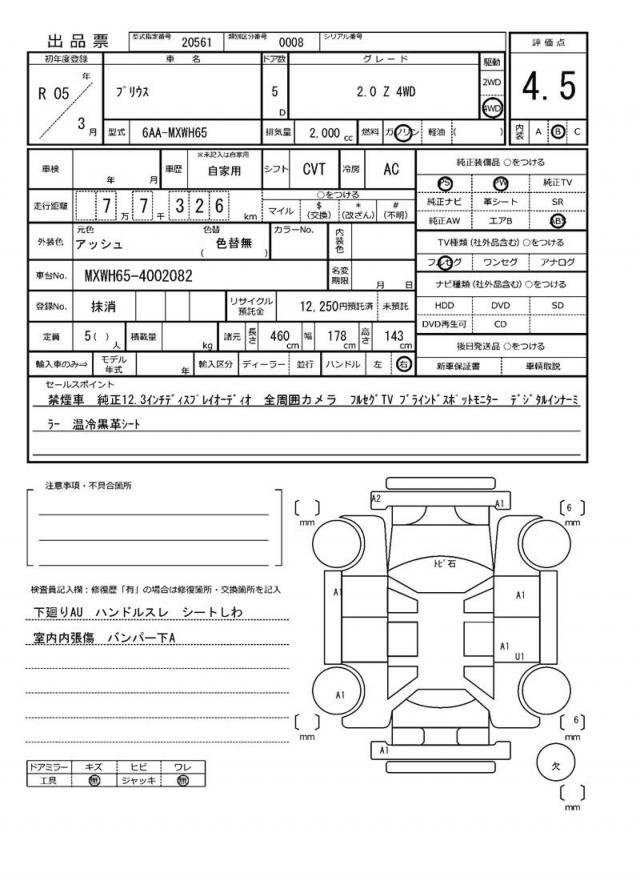 出品票 型式指定番号 20561 類別区分番号 0008 シリアル番号
評価点
4.5
初年度登録 車名 ドア数 グレード 駆動
R 05 年 3 月 プリウス 5 D 2.0 Z 4WD 2WD 4WD
型式 6AA-MXWH65 排気量 2,000 cc 燃料 ガソリン 軽油 ( ) 内装 A B C
車検 年 月 車歴 ※未記入は自家用 自家用 シフト CVT 冷房 AC
走行距離 7 万 7 千 3 2 6 km ○をつける
マイル $ (交換) * (改ざん) # (不明)
外装色 元色 アッシュ 色替 ( 色替無 ) カラーNo. 内装色
車台No. MXWH65-4002082 名変期限 月 日
登録No. 抹消 リサイクル預託金 12,250円預託済 未預託
定員 5( )人 積載量 kg 諸元 長さ 460 cm 幅 178 cm 高さ 143 cm
輸入車のみ⇒ モデル年式 年 輸入区分 ディーラー 並行 ハンドル 左 右
純正装備品 ○をつける
PS PW 純正TV
純正ナビ 革シート SR
純正AW エアB ABS
TV種類(社外品含む)○をつける
フルセグ ワンセグ アナログ
ナビ種類(社外品含む)○をつける
HDD DVD SD
DVD再生可 CD
後日発送品 ○をつける
新車保証書 車輌取説
セールスポイント
禁煙車 純正12.3インチディスプレイオーディオ 全周囲カメラ フルセグTV ブラインドスポットモニター デジタルインナーミ
ラー 温冷黒革シート
注意事項・不具合箇所
検査員記入欄:修復歴「有」の場合は修復箇所・交換箇所を記入
下廻りAU ハンドルスレ シートしわ
室内内張傷 バンパー下A
ドアミラー キズ ヒビ ワレ
工具 無 ジャッキ 無
[ ] mm A2 A1 [ 6 ] mm
トビ石
A1 A1
A1
U1
A1
[ ] mm A1 [ 6 ] mm
欠
[ ] mm